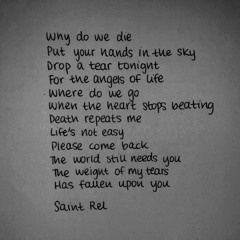 Why do we die
Put your hands in the sky
Drop a tear tonight
For the angels of life
Where do we go
When the heart stops beating
Death repeats me
Life's not easy
Please come back
The world still needs you
The weight of my tears
Has fallen upon you
Saint Rel